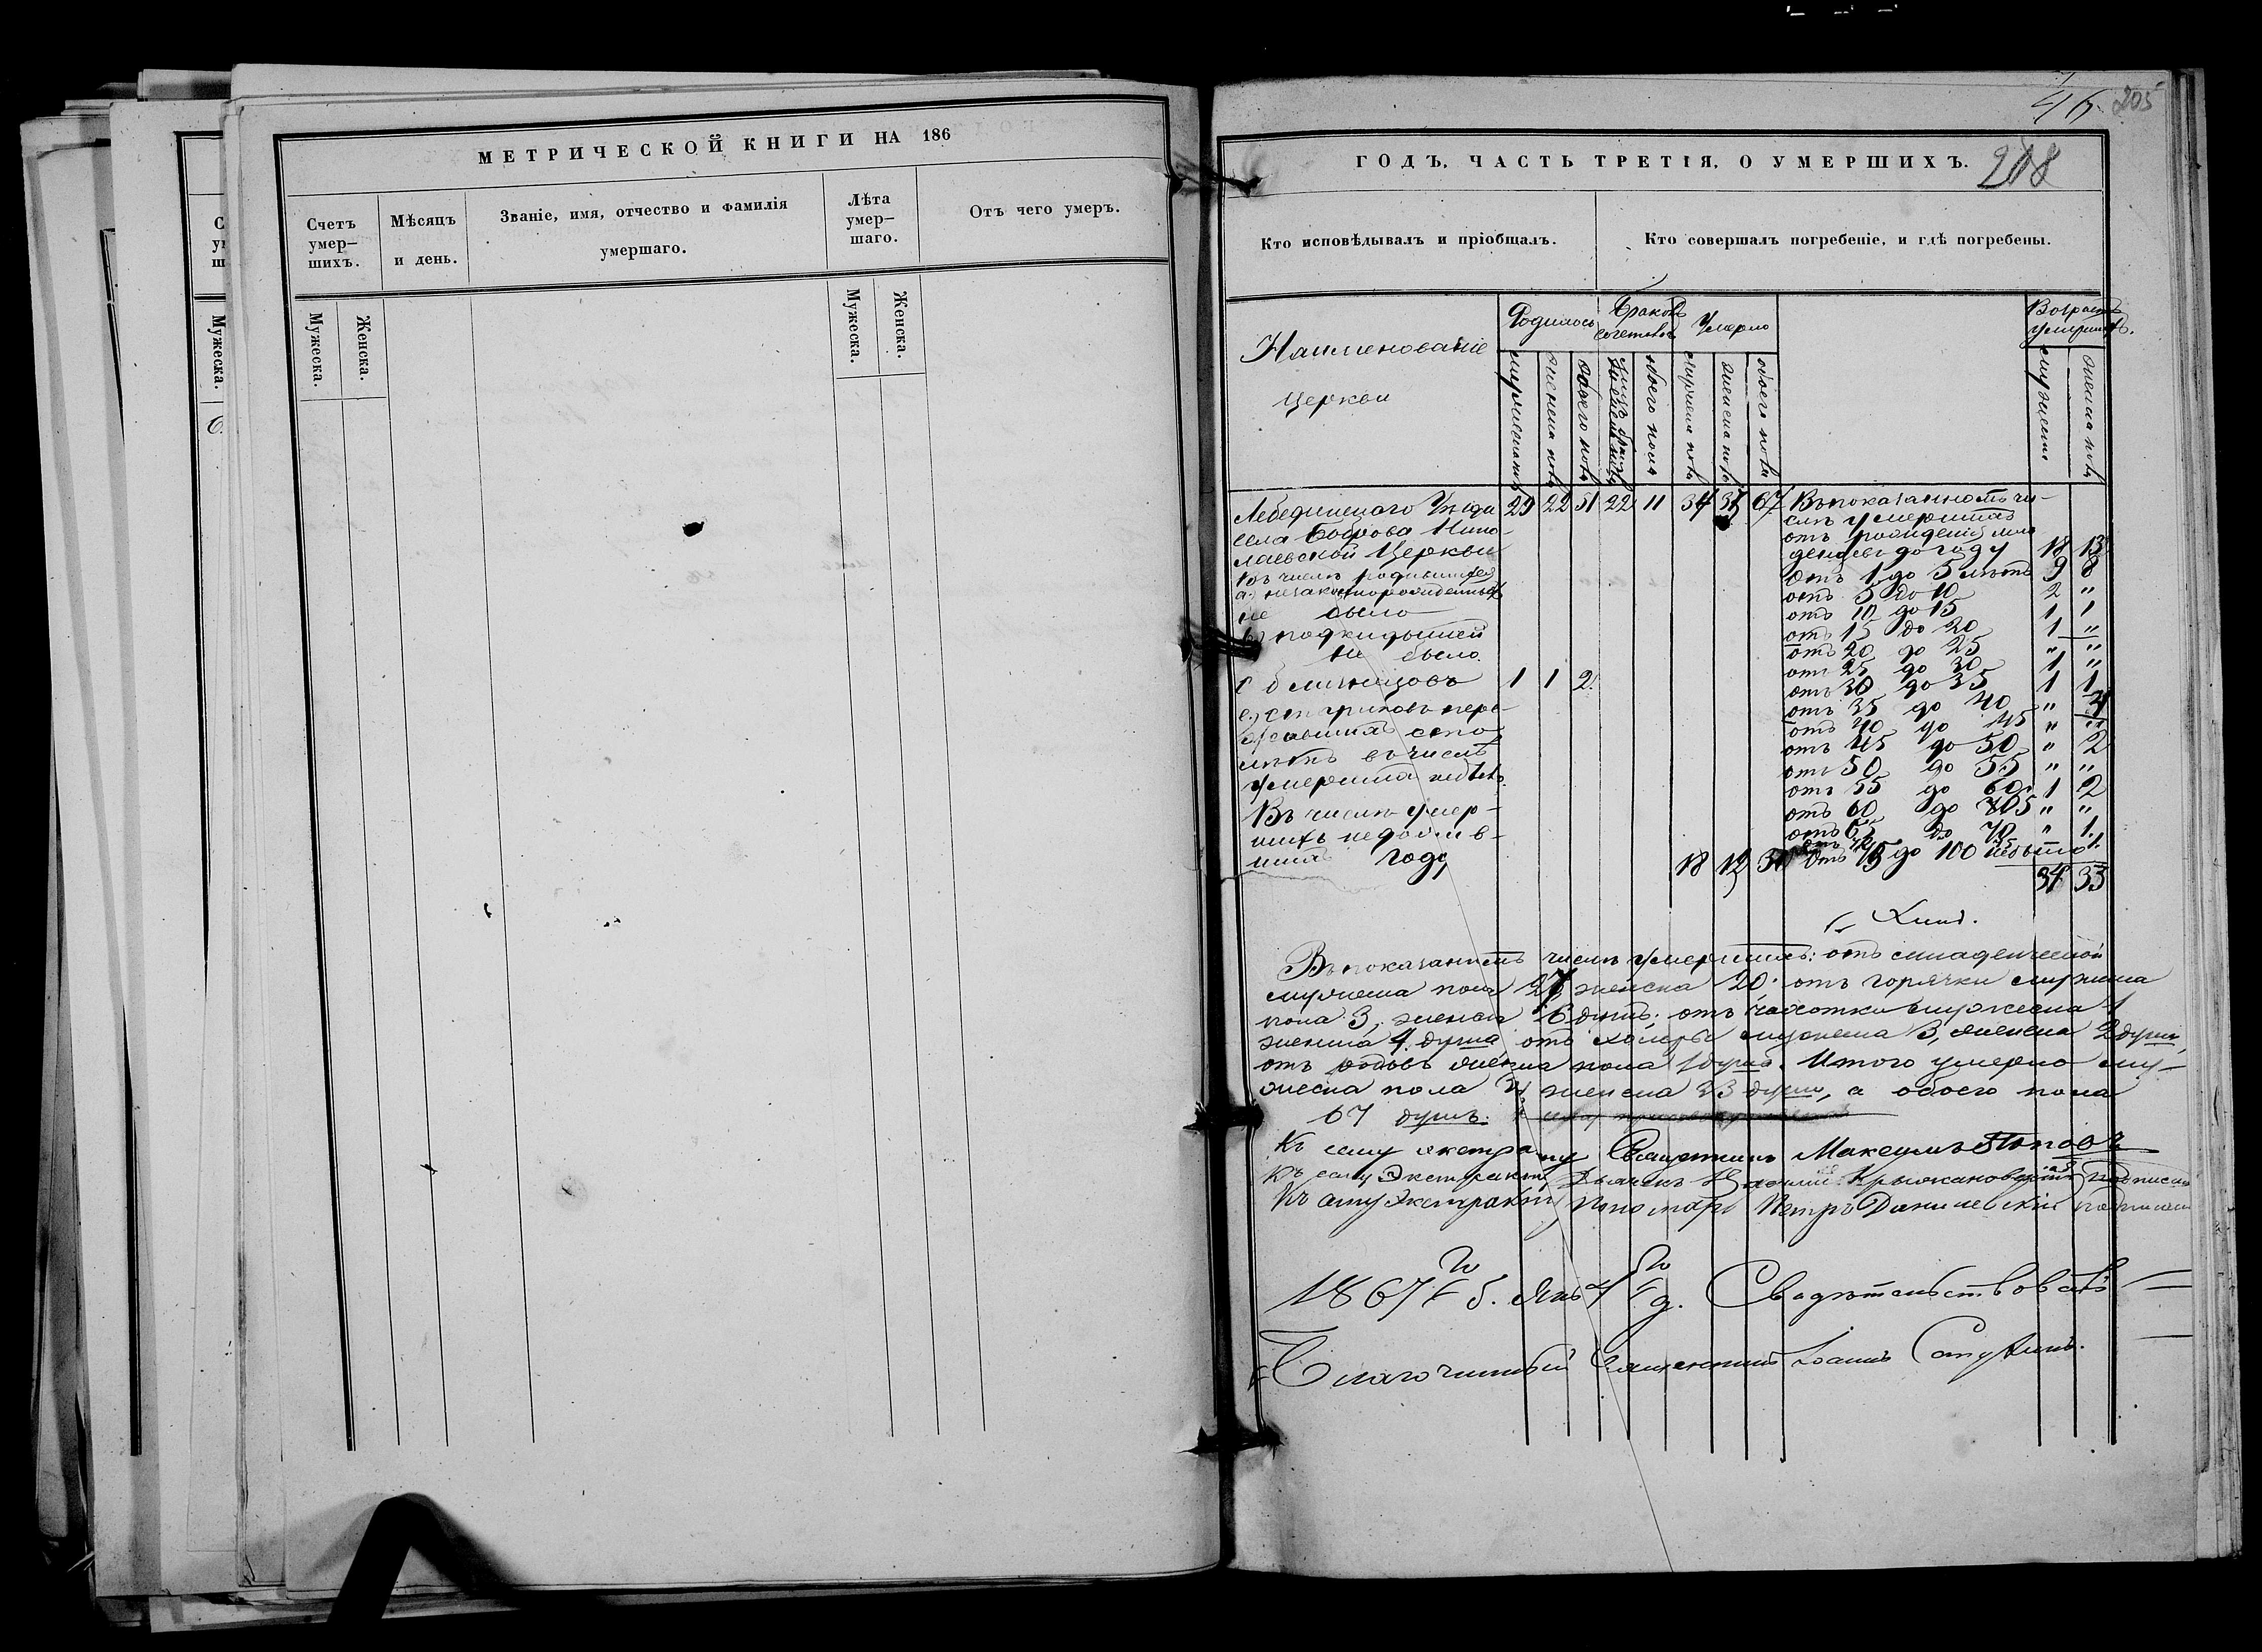 МЕТРИЧЕСКОЙ КНИГИ НА 186
Счетъ умер-
шихъ.
Мѣсяцъ
и день.
Званіе, имя, отчество и фамилія
умершаго.
Лѣта
умер-
шаго.
Отъ чего умеръ.
Мужеска.
Женска.
Мужеска.
Женска.
Мужеска.
205
ГОДЪ. ЧАСТЬ ТРЕТІЯ. О УМЕРШИХЪ.
Кто исповѣдывалъ и пріобщалъ.
Кто совершалъ погребеніе, и гдѣ погребены.
Наименованіе
Церкви
Родилось
Браковъ
Умерло
Возрастъ
умершихъ.
мужеска пола
женска пола
обоего пола
обоего пола
мужеска пола
женска пола
обоего пола
мужеска
женска пола
Лебединскаго Уѣзда 29 22 51 22 11 34 33 67 Въ показанномъ чи-
села Боброва Нико- слѣ умершихъ
лаевской Церкви отъ рожденія мла
денцевъ до году 18 13
въ числѣ родившихся отъ 1 до 5 лѣтъ 9 8
а.) незаконнорожденныхъ отъ 5 до 10 2 "
не было отъ 10 до 15 1 1
в) подкидышей отъ 15 до 20 1 "
не было отъ 20 до 25 " "
отъ 25 до 30 1 "
с близнецовъ 1 1 2. отъ 30 до 35 1 1
е.) стариковъ пере- отъ 35 до 40 " 4
сто отъ 40 до 45 " "
лѣтъ въ числѣ отъ 45 до 50 " 2
умершихъ отъ 50 до 55 " "
отъ 55 до 60 1 2
Въ числѣ умер- отъ 60 до 65 " "
шихъ недожив- отъ 65 до 70 " 1.
шихъ года 18 отъ 75 до 100 небыло
34 33
Въ показанномъ числѣ умершихъ: отъ младенческой
мужеска пола 27 женска 20. отъ горячки мужеска
пола 3, женска 6 душъ; отъ чахотки мужеска 1
женска 4 душа отъ холеры мужеска 3, женска 2 души,
отъ родовъ женска пола 1 душа. Итого умерло му-
жеска пола женска 33 души, а обоего пола
67 душъ.
Къ сему экстракту Священникъ Максимъ Поповъ
Къ сему Экстракту Дьячекъ Крыжановскій подписал
Къ сему Экстракту Пономарь Петръ Данилевскій подписал
1867 го г. Янв 4 го д. Свидѣтельствовалъ
Благочинный Священникъ Іоаннъ